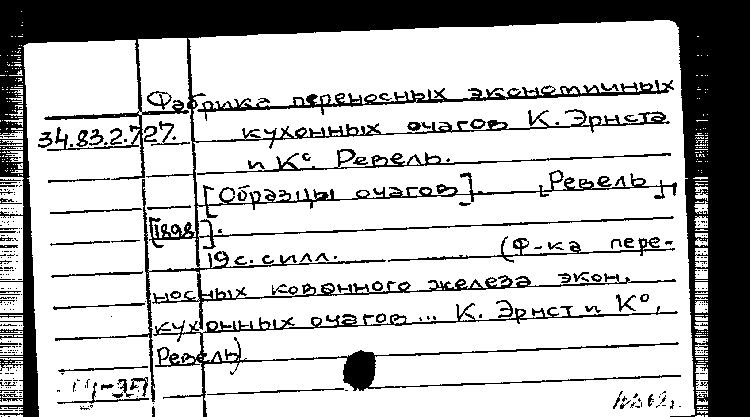 Фабрика переносных экономичных
34.83.2.727. кухонных очагов К. Эрнста
и К°. Ревель.
[Образцы очагов]. [Ревель],
[1898].
19 с. с илл. (Ф-ка пере-
носных кованного железа экон.
кухонных очагов ... К. Эрнст и К°,
Ревель)